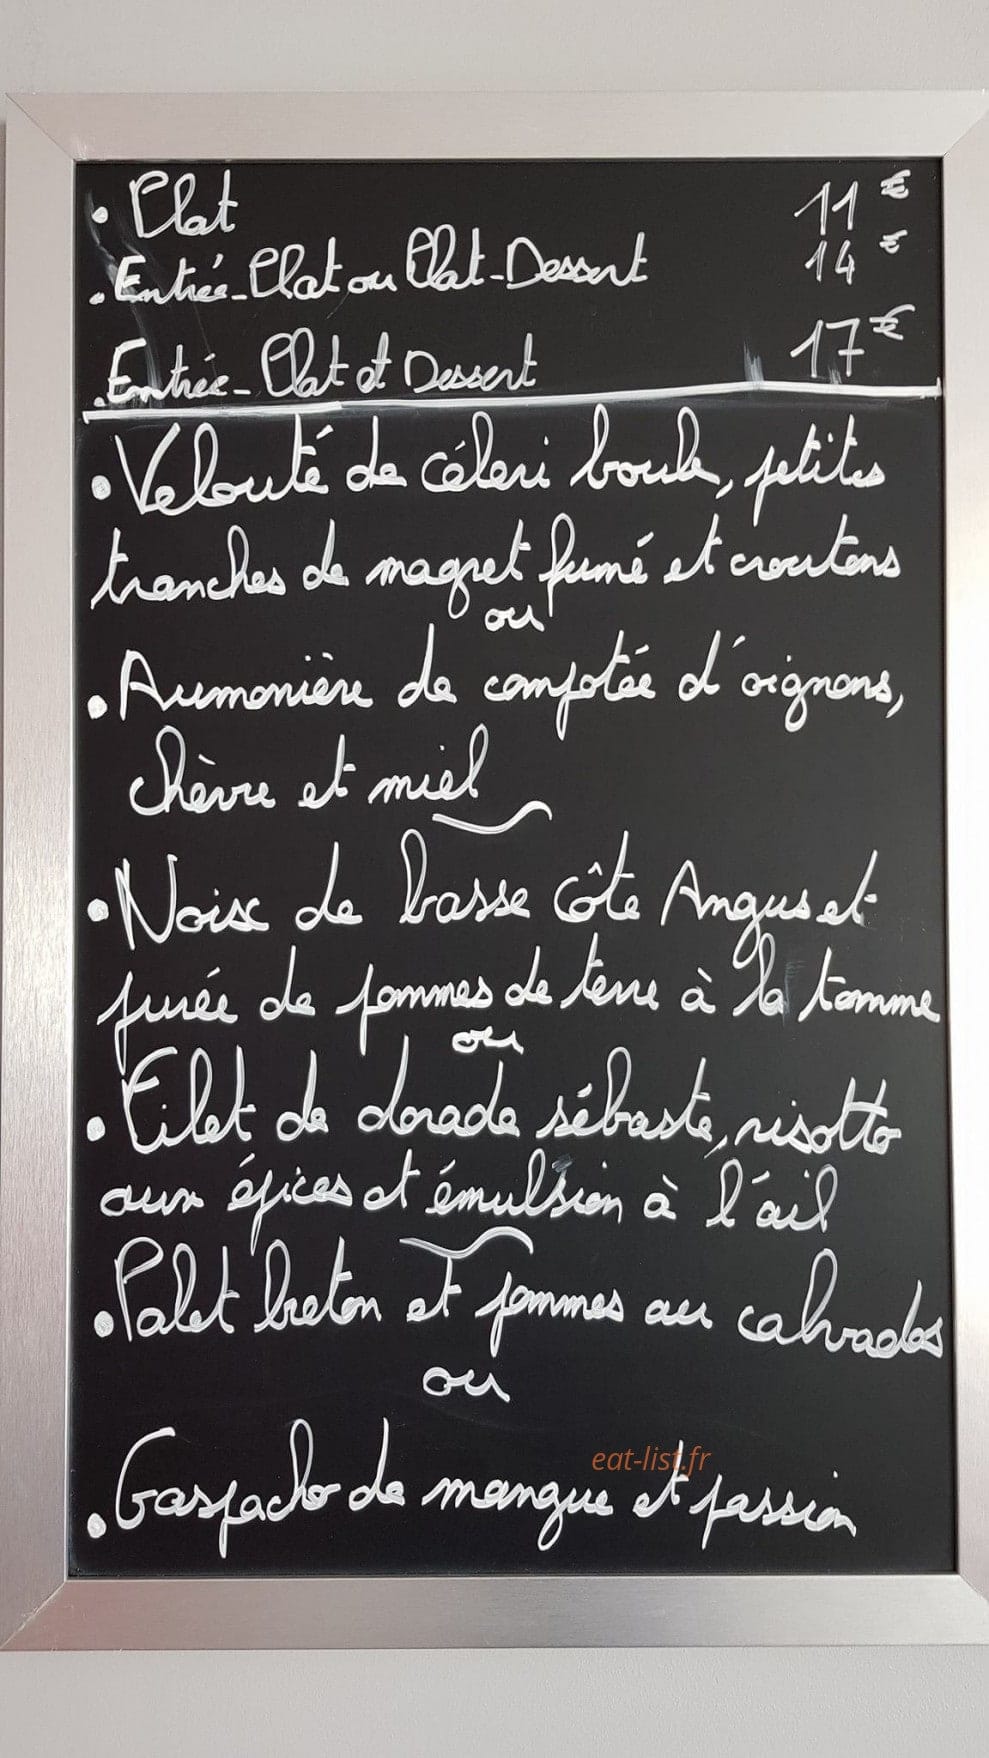 • Plat 11 €
• Entrée-Plat ou Plat-Dessert 14 €
• Entrée-Plat et Dessert 17 €
• Velouté de céleri boule, petites
tranches de magret fumé et croutons
ou
• Aumonière de compotée d'oignons,
chèvre et miel
• Noix de basse côte Angus et
purée de pommes de terre à la tomme
ou
• Filet de dorade sébaste, risotto
aux épices et émulsion à l'ail
• Palet breton et pommes au calvados
ou
eat-list.fr
• Gaspacho de mangue et passion